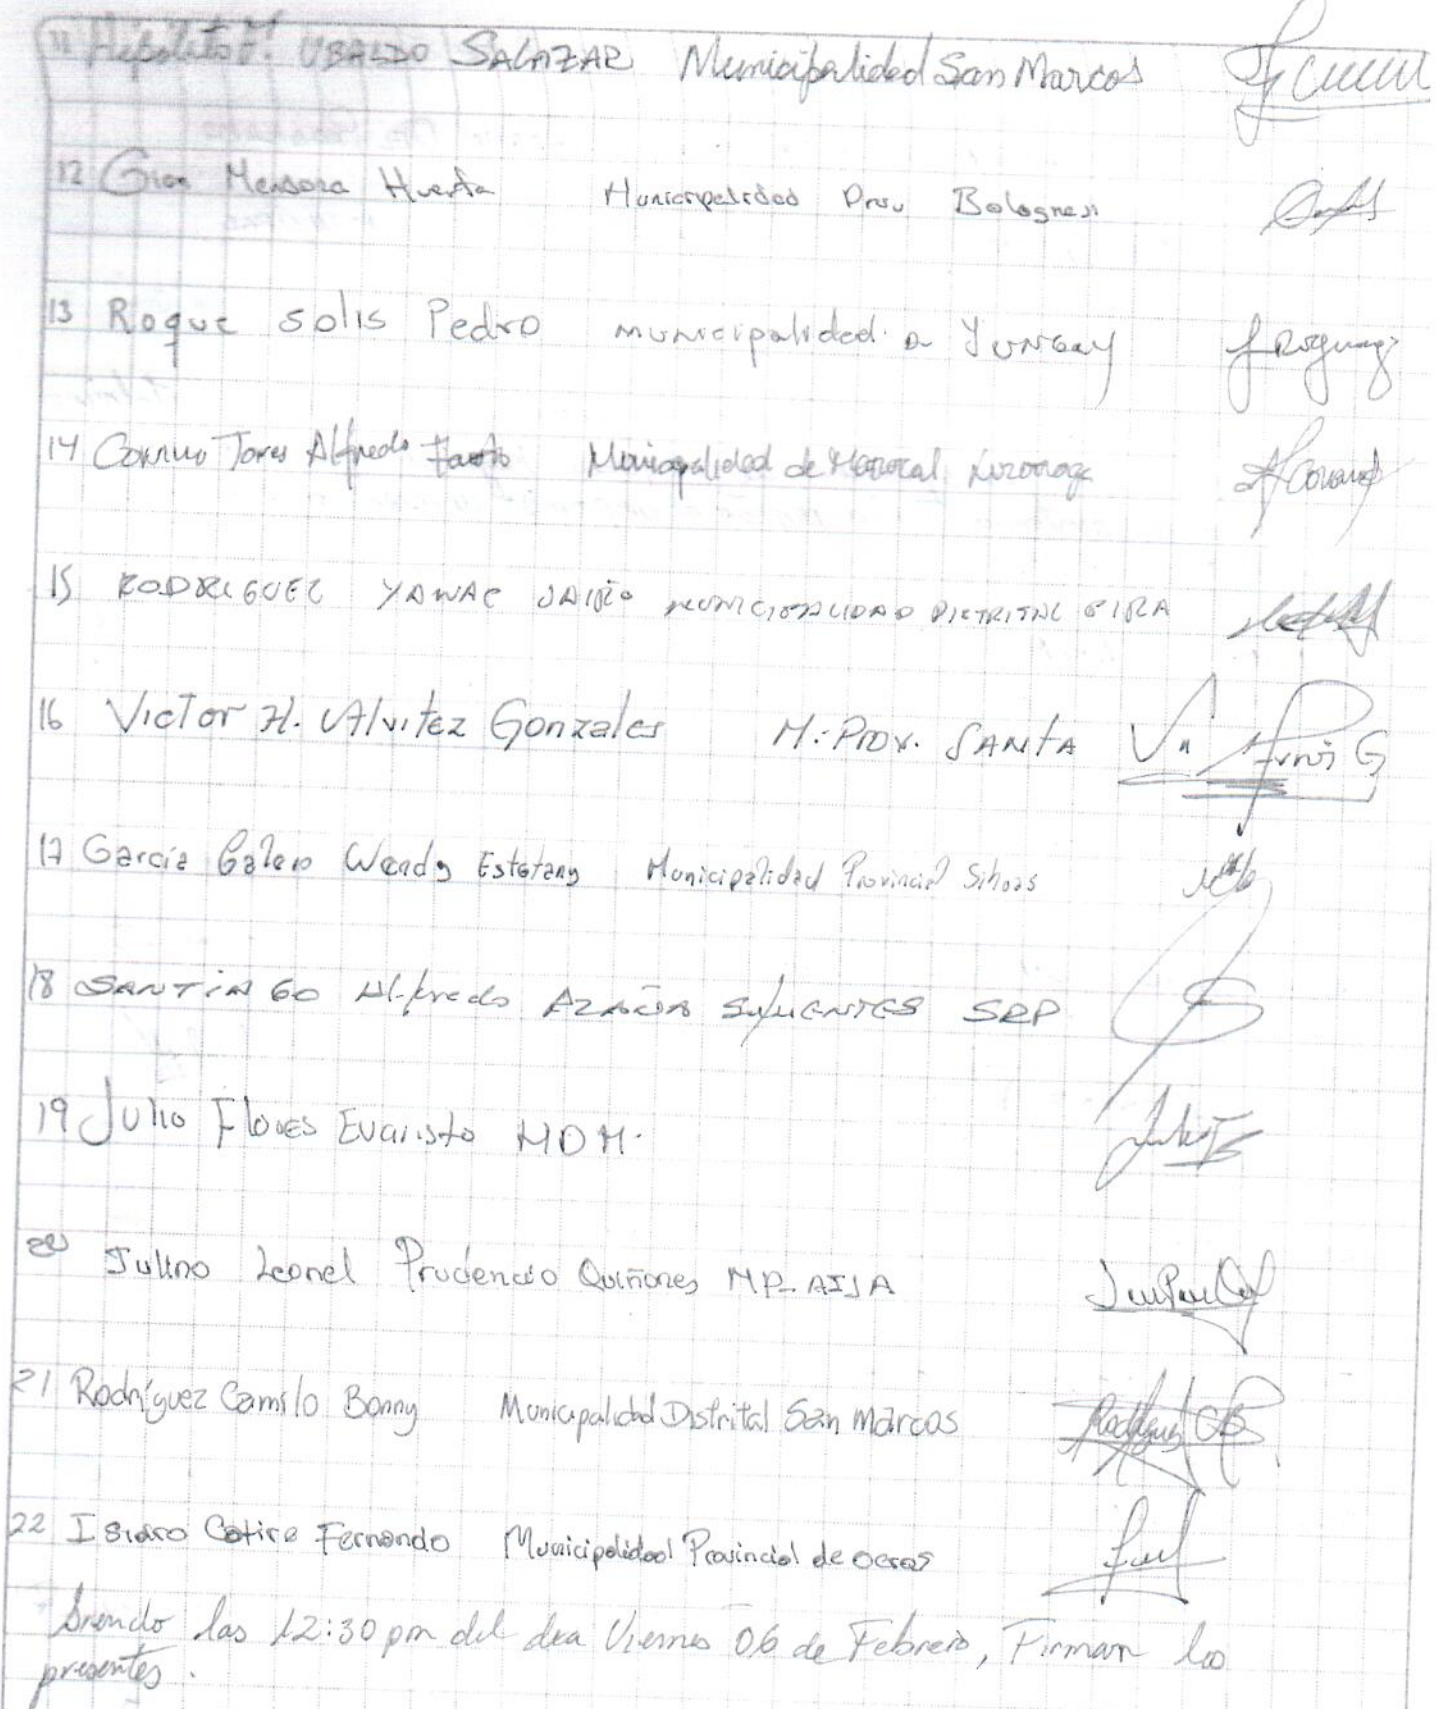 11 Hipolito F. UBALDO SALAZAR Municipalidad San Marcos
12 Gian Mendoza Huerta Municipalidad Prov Bolognesi
13 Roque Solis Pedro municipalidad D Yungay
14 Torres Alfredo Municipalidad de Mariscal Luzuriaga
15 RODRIGUEZ YANAC JAIRO MUNICIPALIDAD DISTRITAL PIRA
16 Victor H. Alvitez Gonzales M. Prov. SANTA
17 García Galero Wendy Estefany Municipalidad Provincial Sihuas
18 SANTIAGO Alfredo AZAÑA SIFUENTES SRP
19 Julio Flores Evaristo MDM.
20 Julino Leonel Prudencio Quiñones MP-AIJA
21 Rodríguez Camilo Bonny Municipalidad Distrital San Marcos
22 Isidro Cotire Fernando Municipalidad Provincial de Ocros
Siendo las 12:30 pm del dia Viernes 06 de Febrero, Firman los
presentes.